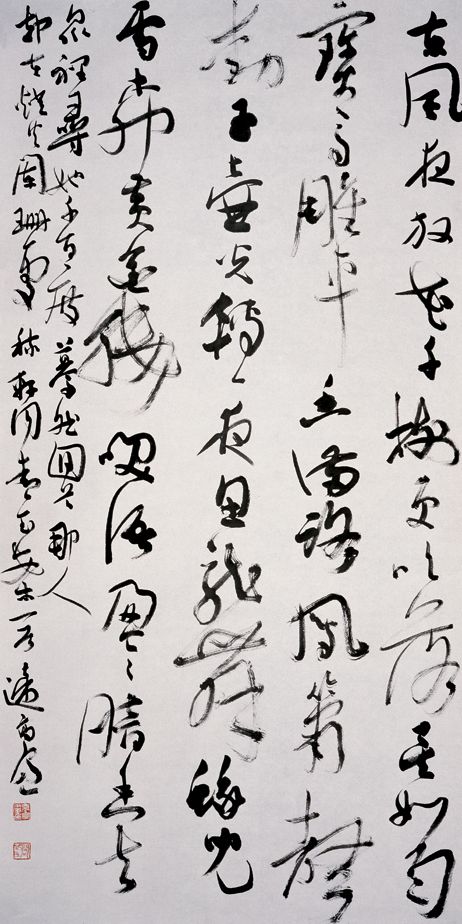 東風夜放花千樹更吹落星如雨
寶馬雕車香滿路鳳簫聲
動玉壺光轉一夜魚龍舞蛾兒
雪柳黃金縷笑語盈盈暗香去
眾裡尋他千百度驀然回首那人
却在燈火闌珊處 稼軒詞青玉案